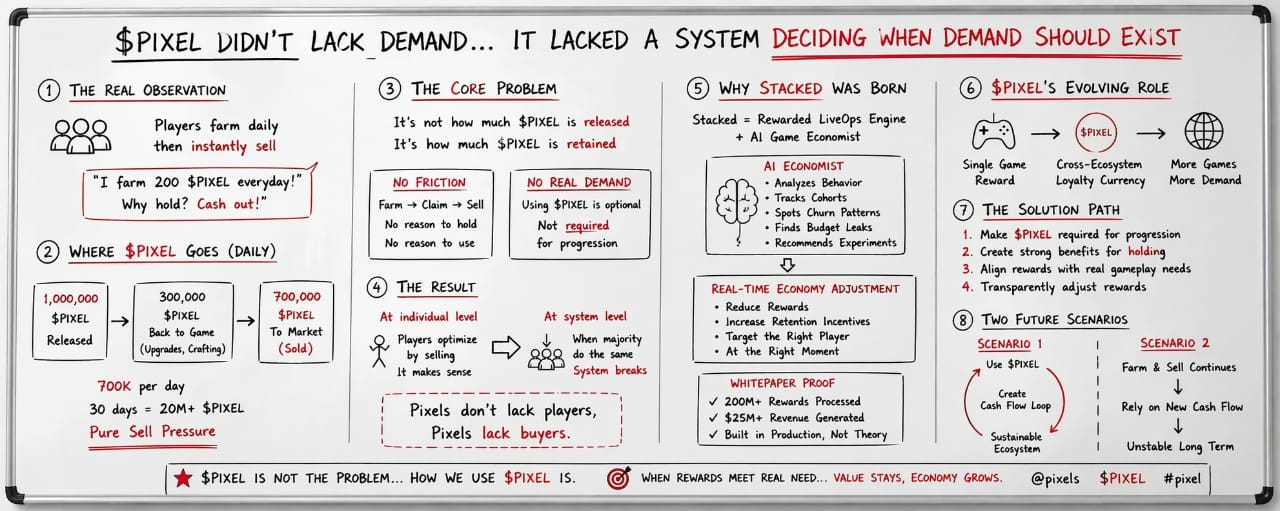 $PIXEL DIDN'T LACK DEMAND... IT LACKED A SYSTEM DECIDING WHEN DEMAND SHOULD EXIST
1 THE REAL OBSERVATION
Players farm daily
then instantly sell
"I farm 200 $PIXEL everyday!"
Why hold? Cash out!"
2 WHERE $PIXEL GOES (DAILY)
1,000,000
$PIXEL
Released
300,000
$PIXEL
Back to Game
(Upgrades, Crafting)
700,000
$PIXEL
To Market
(Sold)
700K per day
30 days = 20M+ $PIXEL
Pure Sell Pressure
3 THE CORE PROBLEM
It's not how much $PIXEL is released
It's how much $PIXEL is retained
NO FRICTION
Farm → Claim → Sell
No reason to hold
No reason to use
NO REAL DEMAND
Using $PIXEL is optional
Not required
for progression
4 THE RESULT
At individual level
Players optimize
by selling
It makes sense
At system level
When majority
do the same
System breaks
Pixels don't lack players,
Pixels lack buyers.
5 WHY STACKED WAS BORN
Stacked = Rewarded LiveOps Engine
+ AI Game Economist
AI ECONOMIST
• Analyzes Behavior
• Tracks Cohorts
• Spots Churn Patterns
• Finds Budget Leaks
• Recommends Experiments
REAL-TIME ECONOMY ADJUSTMENT
• Reduce Rewards
• Increase Retention Incentives
• Target the Right Player
• At the Right Moment
WHITEPAPER PROOF
✓ 200M+ Rewards Processed
✓ $25M+ Revenue Generated
✓ Built in Production, Not Theory
6 $PIXEL'S EVOLVING ROLE
$PIXEL
Single Game
Reward
Cross-Ecosystem
Loyalty Currency
More Games
More Demand
7 THE SOLUTION PATH
1. Make $PIXEL required for progression
2. Create strong benefits for holding
3. Align rewards with real gameplay needs
4. Transparently adjust rewards
8 TWO FUTURE SCENARIOS
SCENARIO 1
Use $PIXEL
Create
Cash Flow Loop
Sustainable
Ecosystem
SCENARIO 2
Farm & Sell Continues
Rely on New Cash Flow
Unstable Long Term
$PIXEL IS NOT THE PROBLEM... HOW WE USE $PIXEL IS.
WHEN REWARDS MEET REAL NEED... VALUE STAYS, ECONOMY GROWS.
@pixels $PIXEL #pixel